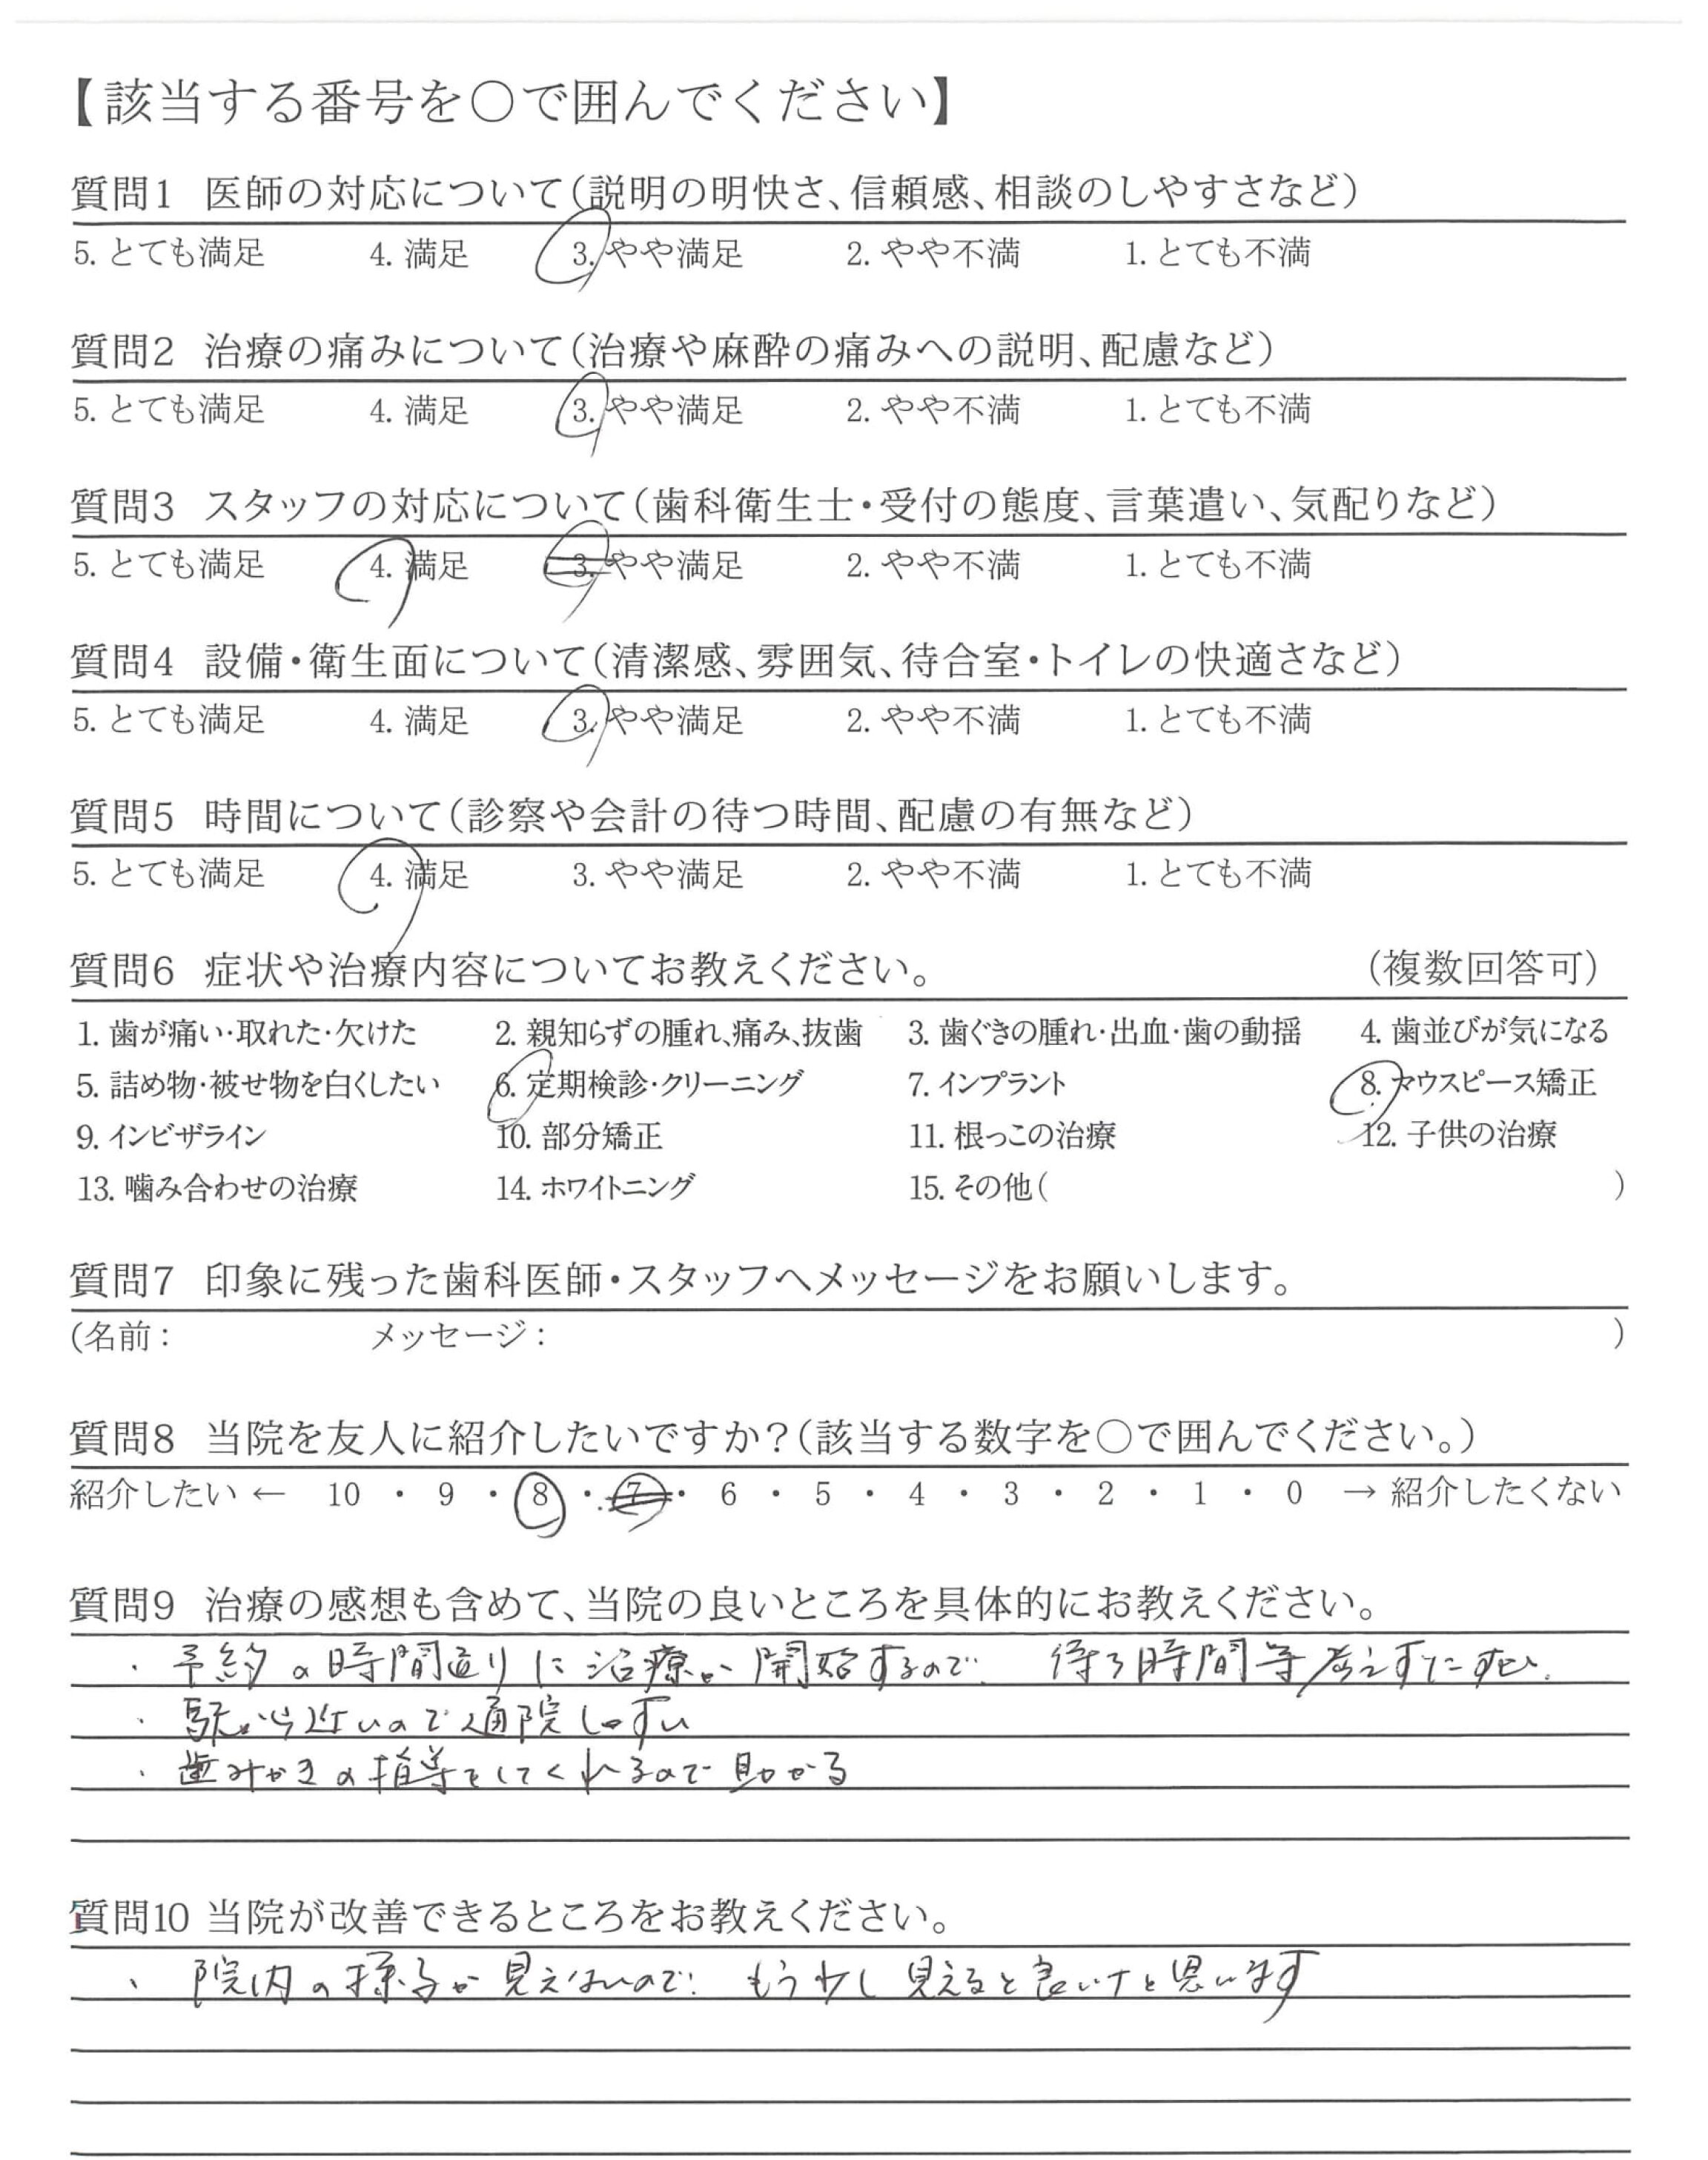 【該当する番号を○で囲んでください】
質問1 医師の対応について(説明の明快さ、信頼感、相談のしやすさなど)
5. とても満足 4. 満足 3. やや満足 2. やや不満 1. とても不満
質問2 治療の痛みについて(治療や麻酔の痛みへの説明、配慮など)
5. とても満足 4. 満足 3. やや満足 2. やや不満 1. とても不満
質問3 スタッフの対応について(歯科衛生士・受付の態度、言葉遣い、気配りなど)
5. とても満足 4. 満足 3. やや満足 2. やや不満 1. とても不満
質問4 設備・衛生面について(清潔感、雰囲気、待合室・トイレの快適さなど)
5. とても満足 4. 満足 3. やや満足 2. やや不満 1. とても不満
質問5 時間について(診察や会計の待つ時間、配慮の有無など)
5. とても満足 4. 満足 3. やや満足 2. やや不満 1. とても不満
質問6 症状や治療内容についてお教えください。 (複数回答可)
1. 歯が痛い・取れた・欠けた 2. 親知らずの腫れ、痛み、抜歯 3. 歯ぐきの腫れ・出血・歯の動揺 4. 歯並びが気になる
5. 詰め物・被せ物を白くしたい 6. 定期検診・クリーニング 7. インプラント 8. マウスピース矯正
9. インビザライン 10. 部分矯正 11. 根っこの治療 12. 子供の治療
13. 噛み合わせの治療 14. ホワイトニング 15. その他( )
質問7 印象に残った歯科医師・スタッフへメッセージをお願いします。
(名前: メッセージ: )
質問8 当院を友人に紹介したいですか?(該当する数字を○で囲んでください。)
紹介したい ← 10 ・ 9 ・ 8 ・ 7 ・ 6 ・ 5 ・ 4 ・ 3 ・ 2 ・ 1 ・ 0 → 紹介したくない
質問9 治療の感想も含めて、当院の良いところを具体的にお教えください。
・予約の時間通りに治療が開始するので、待つ時間等考えずにすむ。
・駅から近いので通院しやすい
・歯みがきの指導をしてくれるので助かる
質問10 当院が改善できるところをお教えください。
・院内の様子が見えないので、もう少し見えると良いナと思います